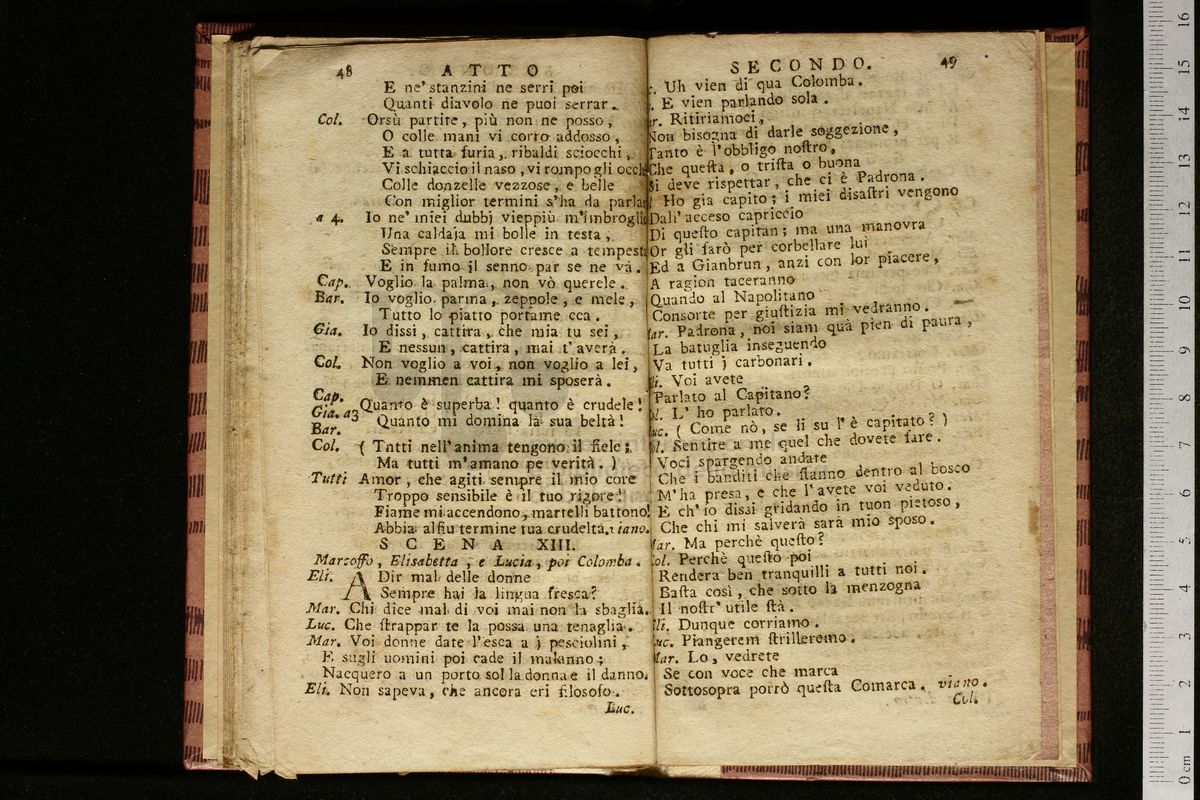 48 ATTO
E ne' stanzini ne serri poi
Quanti diavolo ne puoi serrar.
Col. Orsù partite, più non ne posso,
O colle mani vi corro addosso,
E a tutta furia, ribaldi sciocchi,
Vi schiaccio il naso, vi rompo gli occh
Colle donzelle vezzose, e belle
Con miglior termini s'ha da parlar
a 4. Io ne' miei dubbj vieppiù m'imbroglio
Una caldaja mi bolle in testa,
Sempre il bollore cresce a tempesta
E in fumo il senno par se ne và.
Cap. Voglio la palma, non vò querele.
Bar. Io voglio parma, zeppole, e mele,
Tutto lo piatto portame cca.
Gia. Io dissi, cattira, che mia tu sei,
E nessun, cattira, mai t'averà.
Col. Non voglio a voi, non voglio a lei,
E nemmen cattira mi sposerà.
Cap.
Gia. a3 Quanto è superba! quanto è crudele!
Bar. Quanto mi domina la sua beltà!
Col. (Tntti nell'anima tengono il fiele;
Ma tutti m'amano pe verità.)
Tutti Amor, che agiti sempre il mio core
Troppo sensibile è il tuo rigore!
Fiame mi accendono, martelli battono!
Abbia alfiu termine tua crudeltà. viano.
SCENA XIII.
Marcoffo, Elisabetta, e Lucia, poi Colomba.
Eli. A Dir mal delle donne
Sempre hai la lingua fresca?
Mar. Chi dice mal di voi mai non la sbaglia.
Luc. Che strappar te la possa una tenaglia.
Mar. Voi donne date l'esca a j pesciolini,
E sugli uomini poi cade il malanno;
Nacquero a un porto sol la donna e il danno.
Eli. Non sapeva, che ancora eri filosofo.
Luc.
SECONDO. 49
. Uh vien di qua Colomba.
. E vien parlando sola.
ar. Ritiriamoci,
Non bisogna di darle soggezione,
Tanto è l'obbligo nostro,
Che questa, o trista o buona
Si deve rispettar, che ci è Padrona.
Ho gia capito; i miei disastri vengono
Dall'acceso capriccio
Di questo capitan; ma una manovra
Or gli farò per corbellare lui
Ed a Gianbrun, anzi con lor piacere,
A ragion taceranno
Quando al Napolitano
Consorte per giustizia mi vedranno.
ar. Padrona, noi siam quà pien di paura,
La batuglia inseguendo
Va tutti j carbonari.
li. Voi avete
Parlato al Capitano?
ol. L'ho parlato.
uc. (Come nò, se li su l'è capitato?)
ol. Sentite a me quel che dovete fare.
Voci spargendo andate
Che i banditi che stanno dentro al bosco
M'ha presa, e che l'avete voi veduto.
E ch'io dissi gridando in tuon pietoso,
Che chi mi salverà sarà mio sposo.
Mar. Ma perchè questo?
Col. Perchè questo poi
Rendera ben tranquilli a tutti noi.
Basta così, che sotto la menzogna
Il nostr'utile stà.
Eli. Dunque corriamo.
Luc. Piangerem strilleremo.
Mar. Lo, vedrete
Se con voce che marca
Sottosopra porrò questa Comarca. viano.
Col.
16
15
14
13
12
11
10
9
8
7
6
5
4
3
2
1
0 cm